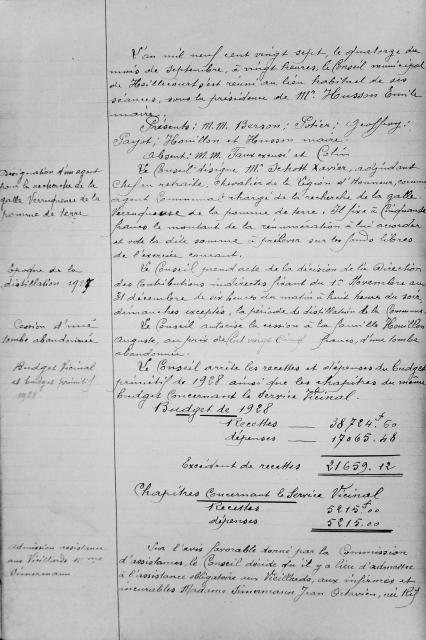 L'an mil neuf cent vingt sept, le quatorze du
mois de Septembre, à vingt heures, le Conseil municipal
de Hoéllecourt s'est réuni au lieu habituel de ses
séances, sous la présidence de Mr Husson Emile
maire.
Présents: M.M. Berson; Potier; Geoffroy;
Payot; Houillon et Husson maire.
Absent: M.M. excusé et Colin
Désignation d'un agent
pour la recherche de la
galle Verruqueuse de la
pomme de terre
Le Conseil désigne Mr Schott Xavier, adjudant
Chef en retraite, Chevalier de la Légion d'Honneur, comme
agent Communal chargé de la recherche de la galle
Verruqueuse de la pomme de terre; Il fixe à Cinquante
francs le montant de la rémunération à lui accorder
et vote la dite somme à prélever sur les fonds libres
de l'exercice courant.
Epoque de la
distillation 1927
Le Conseil prend acte de la décision de la Direction
des Contributions indirectes fixant du 1er Novembre au
31 décembre de six heures du matin à huit heures du soir,
dimanches exceptés, la période de distillation de la Commune.
Cession d'une
tombe abandonnée
Le Conseil autorise la cession à la famille Houillon
Auguste, au prix de Cent vingt Cinq francs, d'une tombe
abandonnée.
Budget Vicinal
et budget primitif
1928
Le Conseil arrête les recettes et dépenses du budget
primitif de 1928 ainsi que les chapitres du même
budget Concernant le Service Vicinal.
Budget de 1928
Recettes — 38724f.60
dépenses — 17065.48
Excédent de recettes 21659.12
Chapitres Concernant le Service Vicinal
Recettes 5215f00
dépenses 5215.00
Admission assistance
aux Vieillards Mme
Sinnermann
Sur l'avis favorable donné par la Commission
d'assistance, le Conseil décide qu'il y a lieu d'admettre
à l'assistance obligatoire aux Vieillards, aux infirmes et
incurables Madame Sinermann Jean Octavien, née